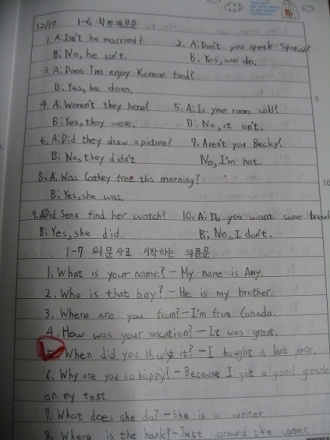 12/17 1-6
1. A: Isn't he married? 2. A: Don't you speak Spanish?
B: No, he isn't. B: Yes, we do.
3. A: Does Tom enjoy Korean food?
B: Yes, he does.
4. A: Weren't they here? 5. A: Is your room cold?
B: Yes, they were. B: No, it isn't.
6. A: Did they draw a picture? 7. Aren't you Becky?
B: No, they didn't No, I'm not.
8. A: Was Cathy free this morning?
B: Yes, she was.
9. A: Did Sena find her watch? 10. A: Do you want some bread
B: Yes, she did. B: No, I don't.
1-7 의문사로 시작하는 의문문
1. What is your name? - My name is Amy.
2. Who is that boy? - He is my brother.
3. Where are you from? - I'm from Canada.
4. How was your vacation? - It was great.
When did you buy it? - I bought it last year.
6. Why are you so happy? - Because I got a good grade
on my test.
7. What does she do? - She is a writer
8. Where is the bank? - Just around the corner.